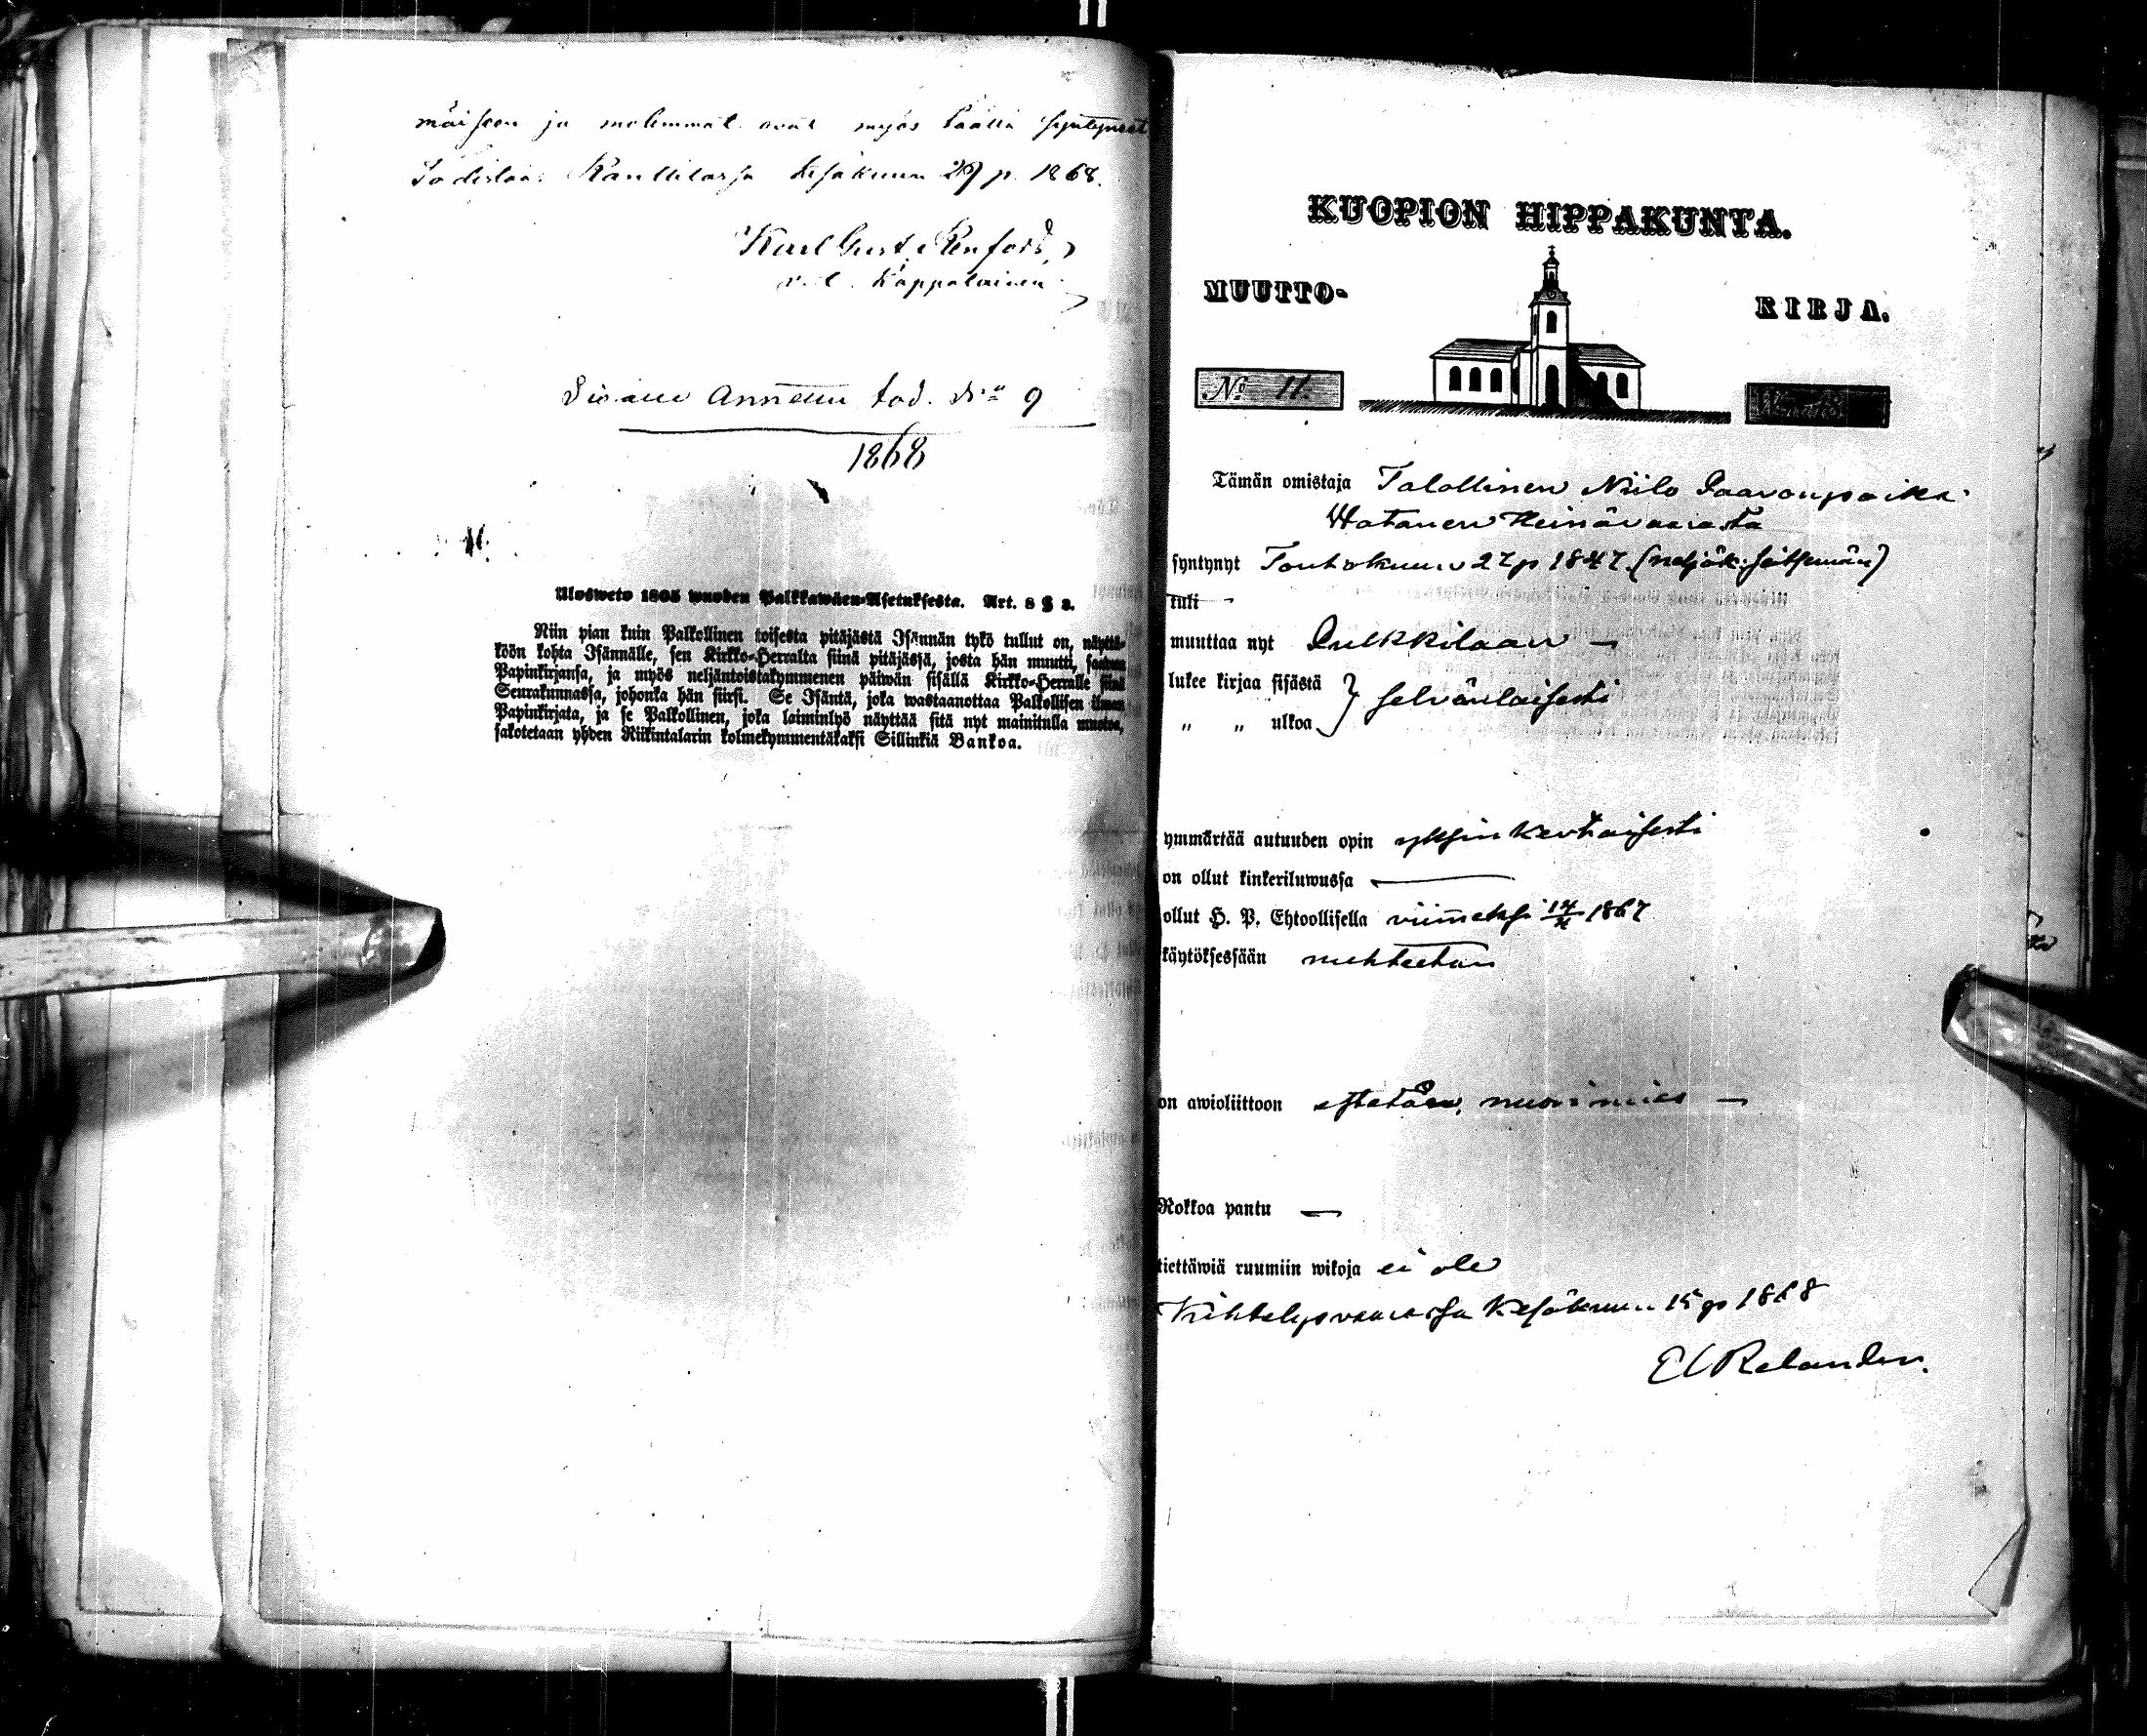 mäiseen ja molemmat ovat myös täällä syntyneet
Todistaa: Rantilassa Kesäkuun 29 p. 1868.
Karl Gust. Renfors,
v.t. Kappalainen
Sisään Annettu tod. N:o 9
1868
Ulosweto 1805 wuoden Palkkawäen-Asetuksesta. Art. 8 § 3.
Niin pian kuin Palkollinen toisesta pitäjästä Isännän tykö tullut on, näyttä-
köön kohta Isännälle, sen Kirkko-Herralta siinä pitäjässä, josta hän muutti, saadun
Papinkirjansa, ja myös neljäntoistakymmenen päiwän sisällä Kirkko-Herralle siinä
Seurakunnassa, johonka hän siirsi. Se Isäntä, joka wastaanottaa Palkollisen ilman
Papinkirjata, ja se Palkollinen, joka laiminlyö näyttää sitä nyt mainitulla muotoa,
sakotetaan yhden Riikintalarin kolmekymmentäkaksi Sillinkiä Bankoa.
KUOPION HIPPAKUNTA.
MUUTTO- KIRJA.
No 11.
Tämän omistaja Talollinen Niilo Paavonpoika
Hatanen Heinävaarasta
syntynyt Toukokuun 27 p 1847. (neljäk. seitsemän)
tuli —
muuttaa nyt Pulkkilaan —
lukee kirjaa sisästä } selvänlaisesti
„ „ ulkoa
ymmärtää autuuden opin yksinkertaisesti
on ollut kinkeriluwussa —
ollut H. P. Ehtoollisella viimeksi 1867
käytöksessään nuhteeton
on awioliittoon esteetön, nuorimies —
Rokkoa pantu —
tiettäwiä ruumiin wikoja ei ole
Kiihtelysvaarassa Kesäkuun 15 p 1868
E Relander.